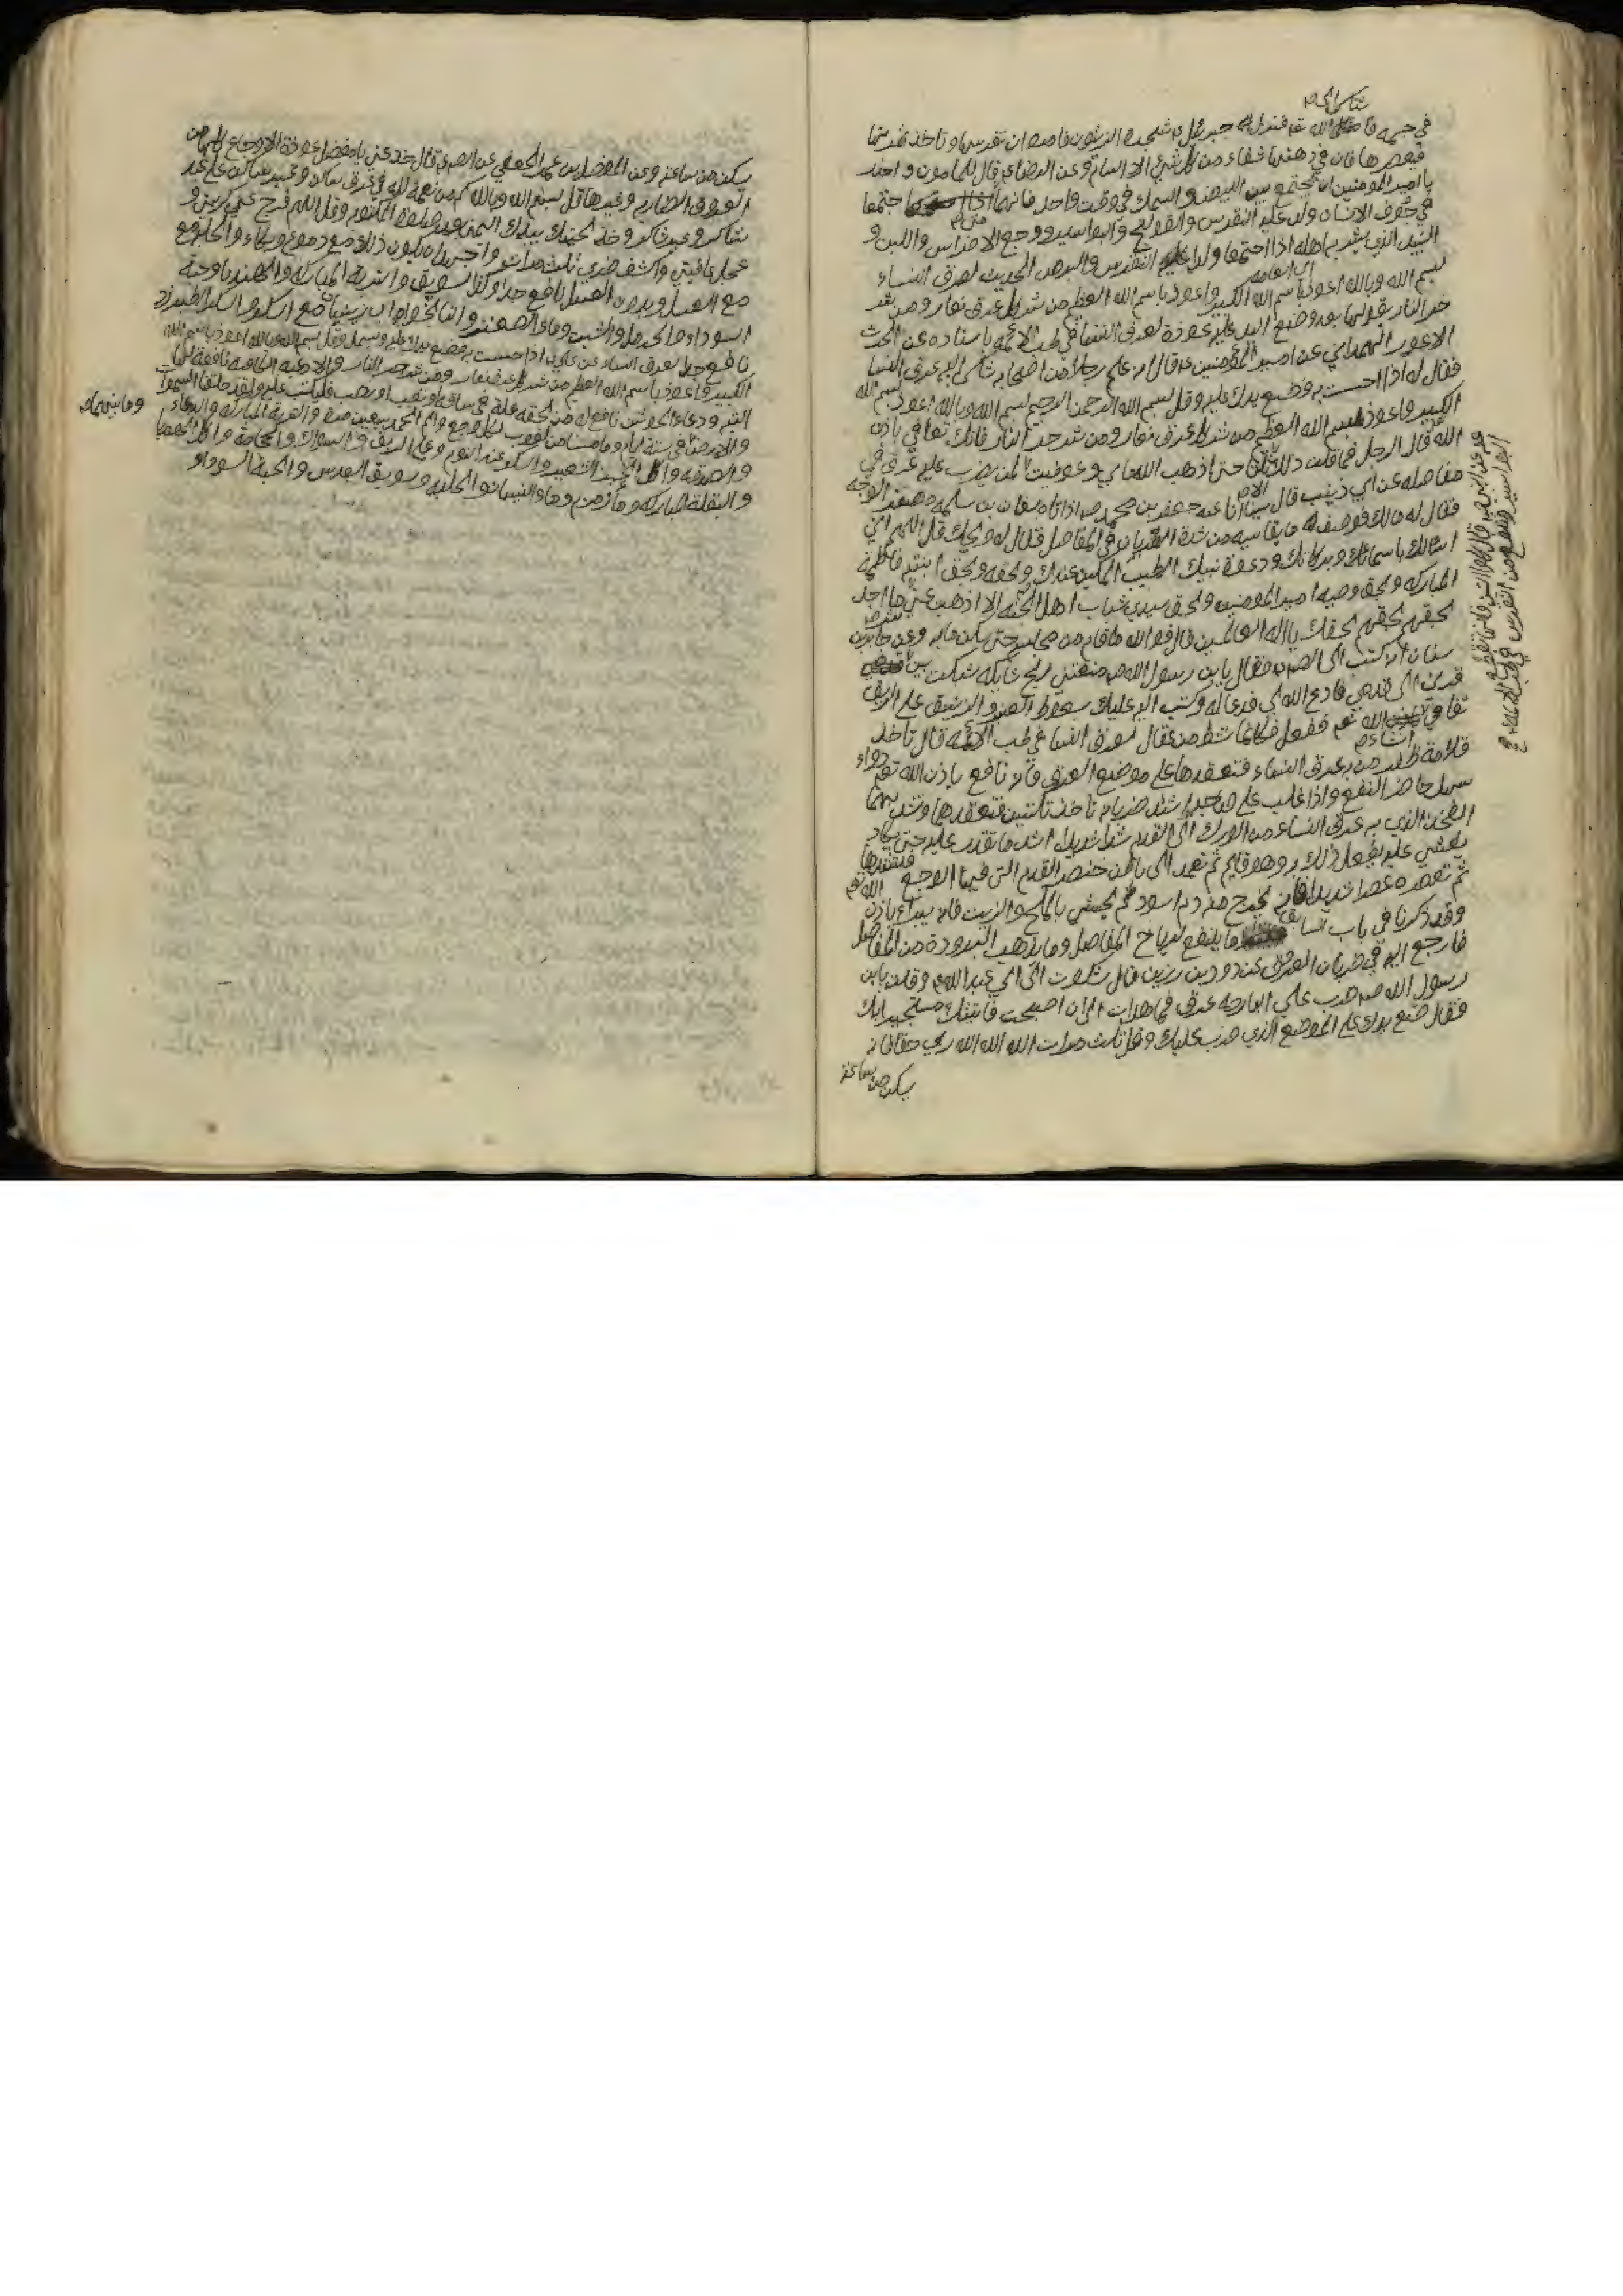 شكى الى
في جسمه فا الله تع فنزل له جبرئيل ع شجرة الزيتون فامره ان يغرسها وياخذ ثمرتها
فيعصرها فان في دهنها شفاء من كل شيء الا السام وعن الرضا ع قال للمامون واحذر
يا امير المومنين ان تجمع بين البيض والسمك في وقت واحد فانهما اجتمعا
في جوف الانسان ولد عليه النقرس والقولنج والبواسير ووجع الاضراس واللبن و
النبيذ الذي يشربه اهله اذا اجتمعا ولد النقرس والبرص الحديث لعرق النساء
بسم الله وبالله اعوذ باسم الله الكبير واعوذ باسم الله العظيم من شر كل عرق نعار ومن شر
حر النار يقرأها بعد وضع اليد عليه عوذة لعرق النسا في طب الائمة باسناده عن الحرث
الاعور الهمداني عن امير المؤمنين ع قال رجلا من اصحابه شكى اليه عرق النسا
فقال له اذا احست به فضع يدك عليه وقل بسم الله الرحمن الرحيم بسم الله وبالله اعوذ بسم الله
الكبير واعوذ بسم الله العظيم من شر كل عرق نعار ومن شر حر النار فانك تعافى باذن
الله قال الرجل فما قلت ذلك ثلثا حتى اذهب الله ما بي وعوفيت لمن يضرب عليه عرق في
مفاصله عن ابي زينب قال بينا انا عند جعفر بن محمد ع اذ اتاه سنان بن سلمه مصفر الوجه
فقال له مالك فوصف له ما يقاسيه من شدة الضربان في المفاصل فقال له ويحك قل اللهم اني
اسئلك باسمائك وبركاتك ودعوة نبيك الطيب المكين عندك وبحقه وبحق ابنته فاطمة
المباركه وبحق وصيه امير المومنين وبحق سيدي شباب اهل الجنة الا اذهبت عني ما اجد
بحقهم بحقهم بحقك يا اله العالمين قال فوالله ما قام من مجلسه حتى سكن ما به وعن جابر بن
سنان انه كتب الى الصادق فقال يابن رسول الله ص منعتني ريح شابكه شبكت بين
قرني الى قدمي فادع الله لي فدعا له وكتب اليه عليك بسعوط العنبر والزنبق على الريق
تعافى انشاء الله تع ففعل فكانما نشط من عقال لعرق النسا في طب الائمة قال تاخذ
قلامة ظفر من به عرق النساء فتعقدها على موضع العرق فانه نافع باذن الله تع دواء
سهل حاضر النفع واذا غلب على صاحبه واشتد ضربانه تاخذ تكتين فتعقدهما وتشد بهما
الفخذ الذي به عرق النساء من الورك الى القدم شدا شديدا اشد ما تقدر عليه حتى يكاد
يغشى عليه يفعل ذلك به وهو قايم ثم تعمد الى باطن خنصر القدم التي فيها الوجع فتعصرها
ثم تعصره عصرا شديدا فانه يخرج منه دم اسود ثم يحشى بالملح والزيت فانه يبراء باذن الله تع
وقد ذكرنا في باب السابق ما ينفع لرياح المفاصل وما يذهب البرودة من المفاصل
فارجع اليه في ضربان العروق عن دود بن رزين قال شكوت الى ابي عبد الله ع وقلت يابن
رسول الله ص ضرب علي البارحه عرق فما هدات الى ان اصبحت فاتيتك مستجيرا بك
فقال ضع يدك على الموضع الذي ضرب عليك وقل ثلاث مرات الله الله الله ربي حقا فانه
يسكن من ساعته
يسكن من ساعته وعن المفضل بن عمر الجعفي عن الصادق قال خذ عني يا مفضل عوذة الاوجاع كلها من
العروق الضاربه وغيرها قل بسم الله وبالله كم من نعمة لله في عرق ساكن وغير ساكن على عبد
شاكر وغير شاكر وخذ لحيتك بيدك اليمنى بعد صلوة المكتوبه وقل اللهم فرج عني كربتي و
عجل عافيتي واكشف ضري ثلث مرات واحرص ان يكون ذلك مع دموع وبكاء والحلبه مع
مع العسل وبدون العسل نافع جدا وكذا السويق والتربة المباركه والهندباء وحبة
السوداء والحرمل والشبت وماء الهندبا مع السكر
نافع جدا لعرق النساء عن علي ع اذا احسست به فضع يدك عليه وسم وقل بسم الله وبالله اعوذ باسم الله
الكبير واعوذ باسم الله العظيم من شر كل عرق نعار ومن شر حر النار والادعيه الكافيه نافعة لها
التيم ودعاء الجوشن نافع له من لحقه علة في ساقه او تعب او نصب فليكتب عليه ولقد خلقنا السموات
والارض في ستة ايام وما مسنا من لغوب لكل وجع وألم الحمد سبعين مرة والتربة المباركه والدعاء وما بينهما
والصدقه واكل الخبز الشعير والسكر عند النوم وعلى الريق والسواك والحجامة
والبقلة المباركه وماء زمزم وماء النيسان والحلبه وسويق العدس والحبة السوداء